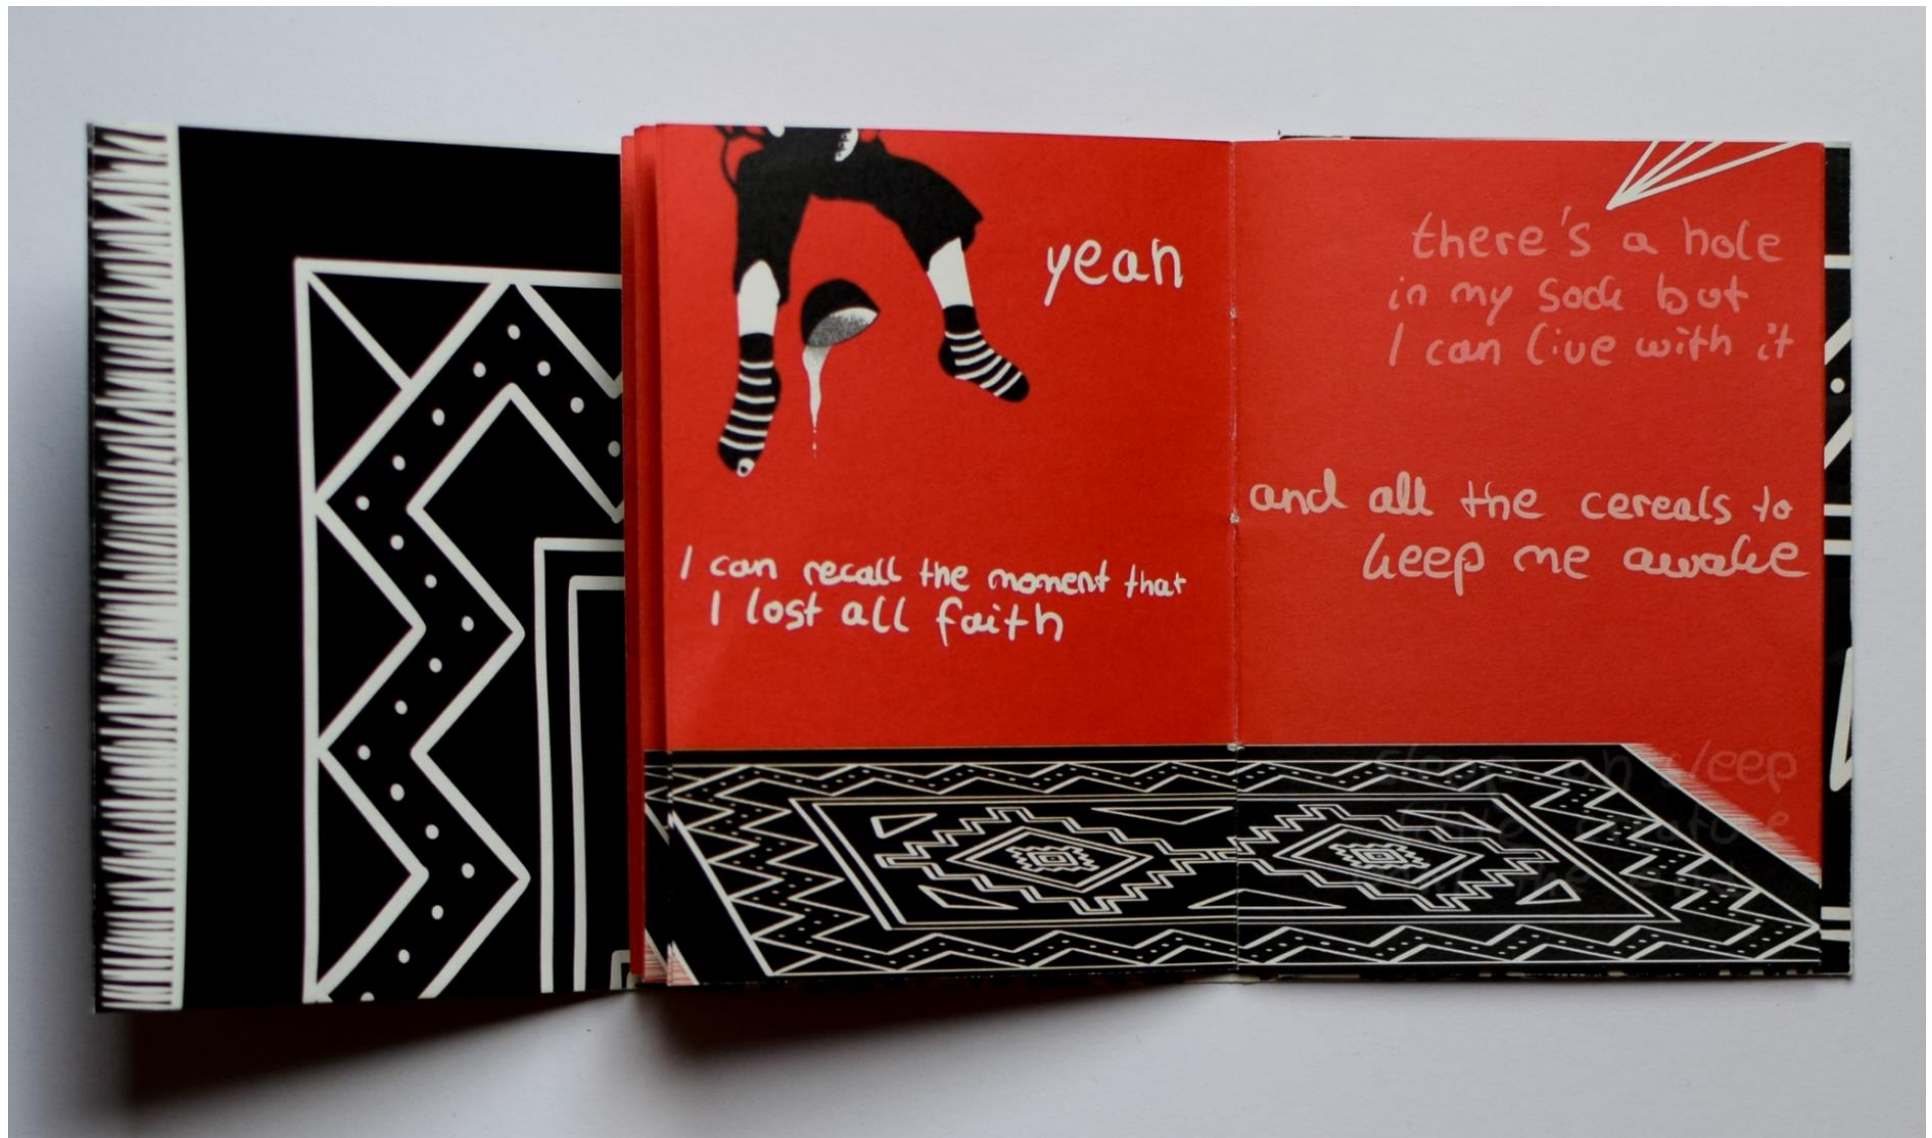 yeah
I can recall the moment that
I lost all faith
there's a hole
in my sock but
I can live with it
and all the cereals to
keep me awake
sleep oh sleep
little creature